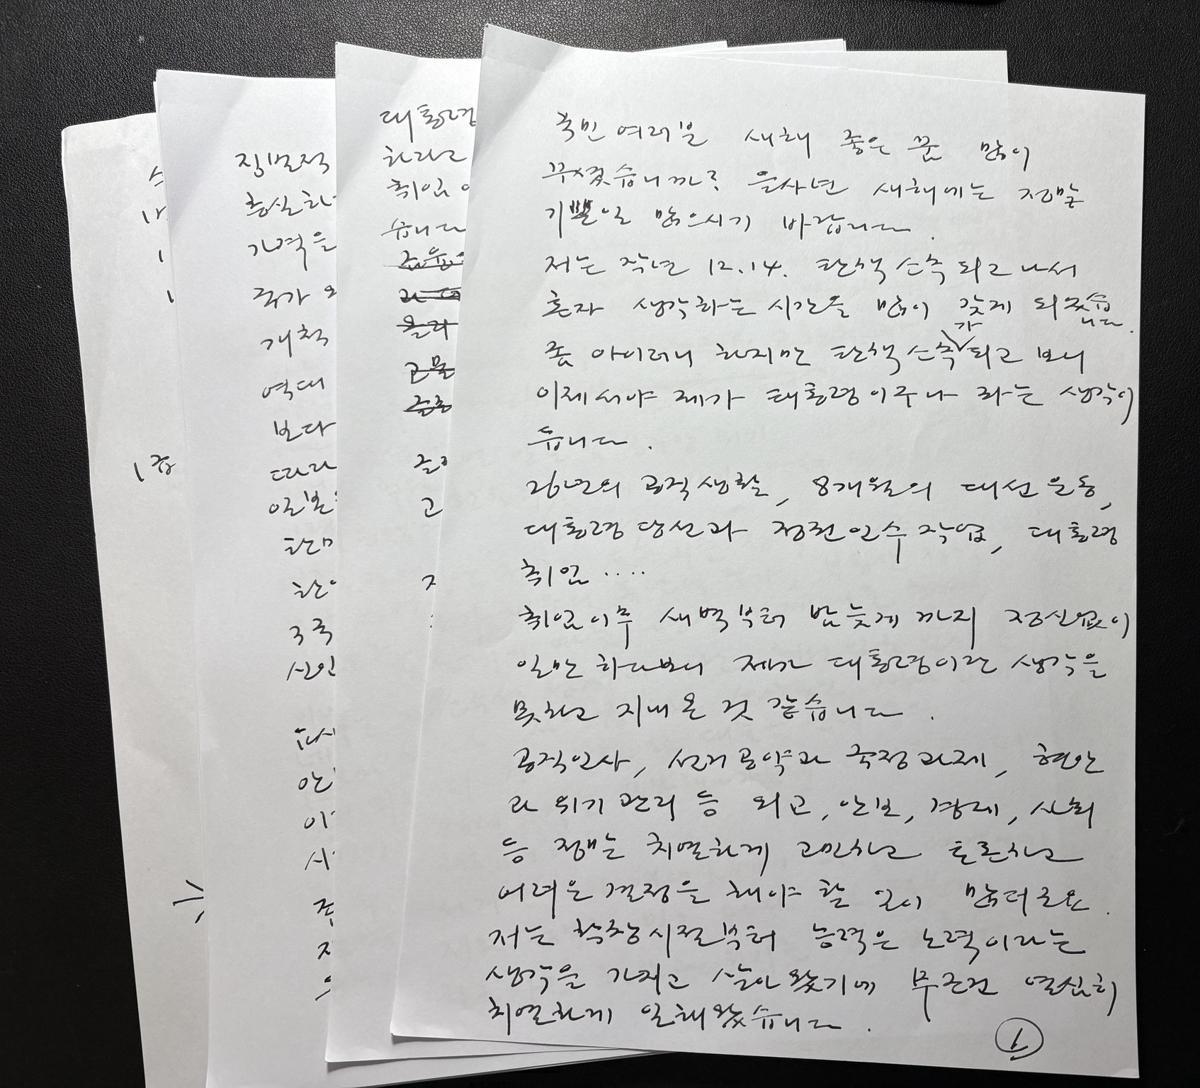 국민 여러분 새해 좋은 꿈 많이
꾸셨습니까? 을사년 새해에는 정말
기쁜일 많으시기 바랍니다.
저는 작년 12.14. 탄핵소추 되고 나서
혼자 생각하는 시간을 많이 갖게 되었습니다.
좀 아이러니 하지만 탄핵소추가 되고 보니
이제서야 제가 대통령이구나 라는 생각이
듭니다.
26년의 공직생활, 8개월의 대선 운동,
대통령 당선과 정권 인수 작업, 대통령
취임....
취임이후 새벽부터 밤늦게 까지 정신없이
일만 하다보니 제가 대통령이란 생각을
못하고 지내 온 것 같습니다.
공직인사, 선거공약과 국정과제, 현안
과 위기 관리 등 외교, 안보, 경제, 사회
등 정말 치열하게 고민하고 토론하고
어려운 결정을 해야 할 일이 많더군요.
저는 학창시절부터 능력은 노력이라는
생각을 가지고 살아 왔기에 무조건 열심히
치열하게 일해왔습니다.
1
대통령
하라고
취임
습니다
고
집몰적
충실하
가격을
국가
개척
역대
보다
따라
일본
한미
3국